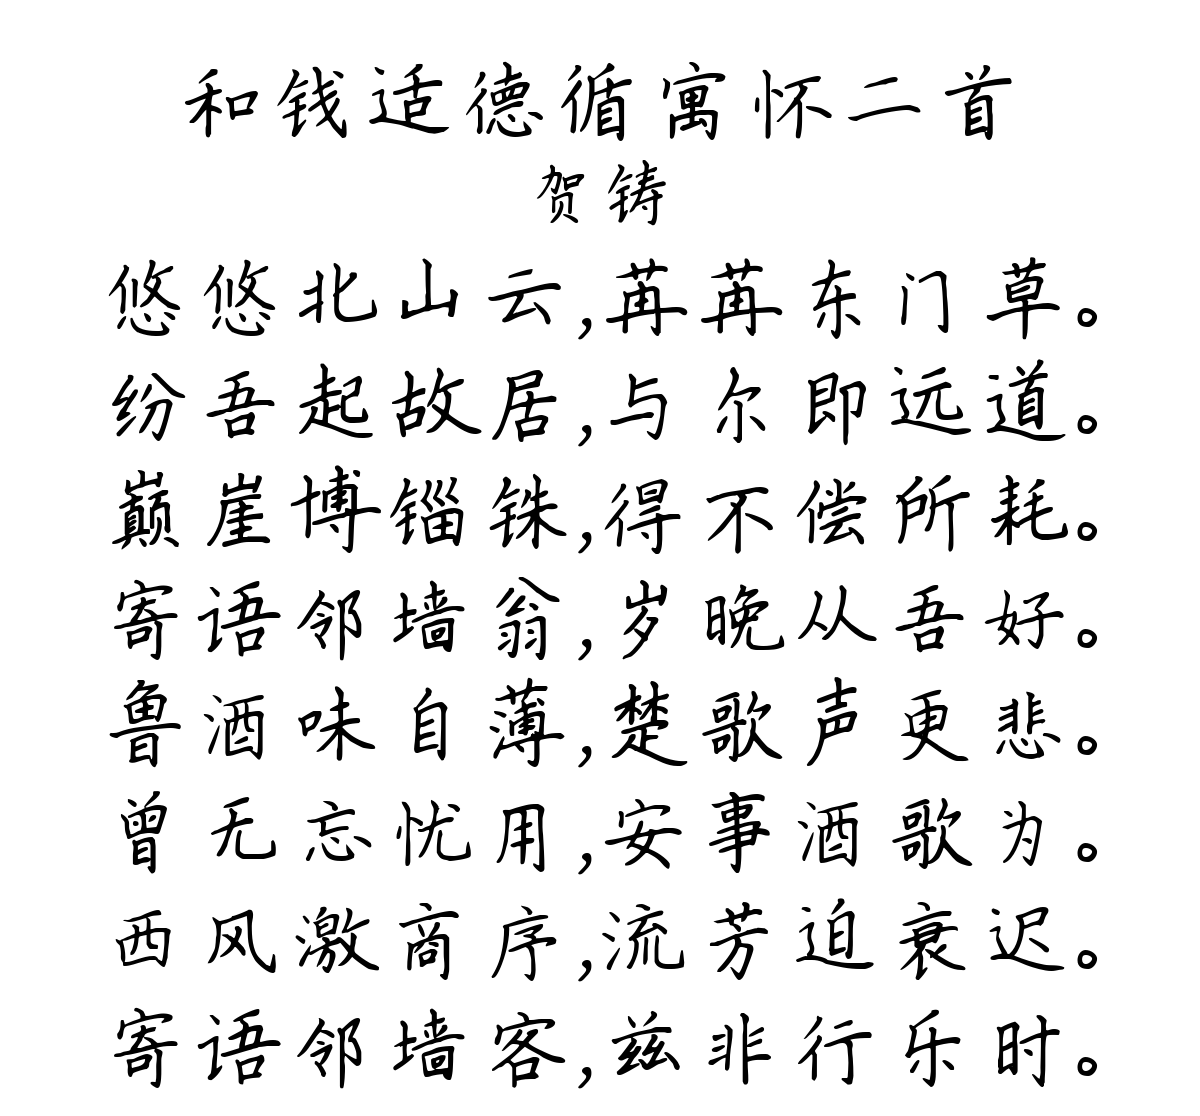 和钱适德循寓怀二首
贺铸
悠悠北山云,苒苒东门草。
纷吾起故居,与尔即远道。
巅崖博锱铢,得不偿所耗。
寄语邻墙翁,岁晚从吾好。
鲁酒味自薄,楚歌声更悲。
曾无忘忧用,安事酒歌为。
西风激商序,流芳迫衰迟。
寄语邻墙客,兹非行乐时。